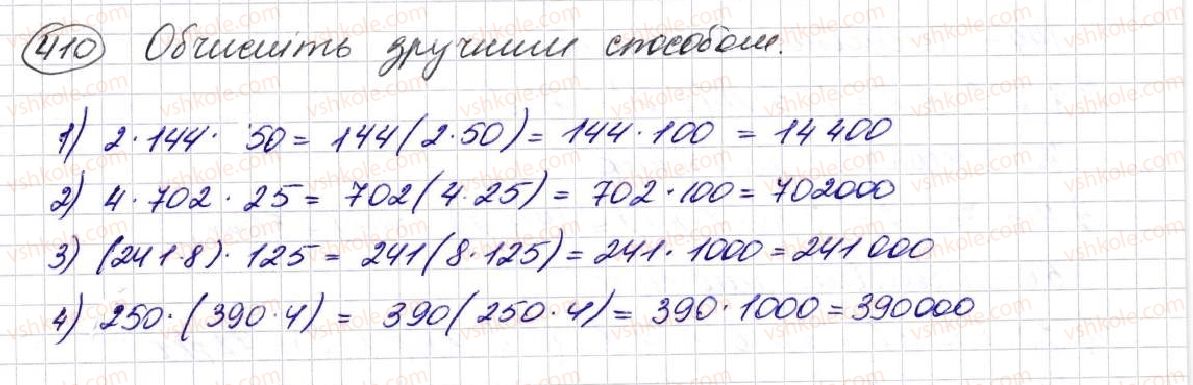 410 Обчисліть зручним способом.
1) 2·144·50 = 144(2·50) = 144·100 = 14400
2) 4·702·25 = 702(4·25) = 702·100 = 702000
3) (241·8)·125 = 241(8·125) = 241·1000 = 241000
4) 250·(390·4) = 390(250·4) = 390·1000 = 390000